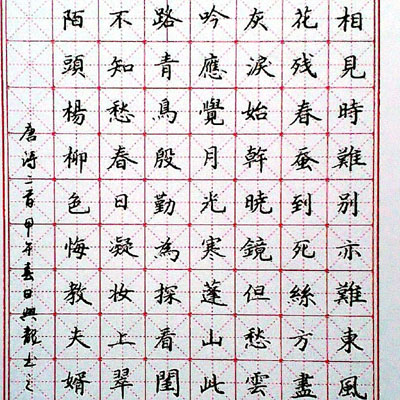 相見時難別亦難東風
花残春蚕到死絲方盡
灰淚始幹曉鏡但愁雲
吟應覺月光寒蓬山此
路青鳥殷勤為探看閨
不知愁春日凝妆上翠
陌頭楊柳色悔教夫婿
唐诗二首甲午春日興龍书之